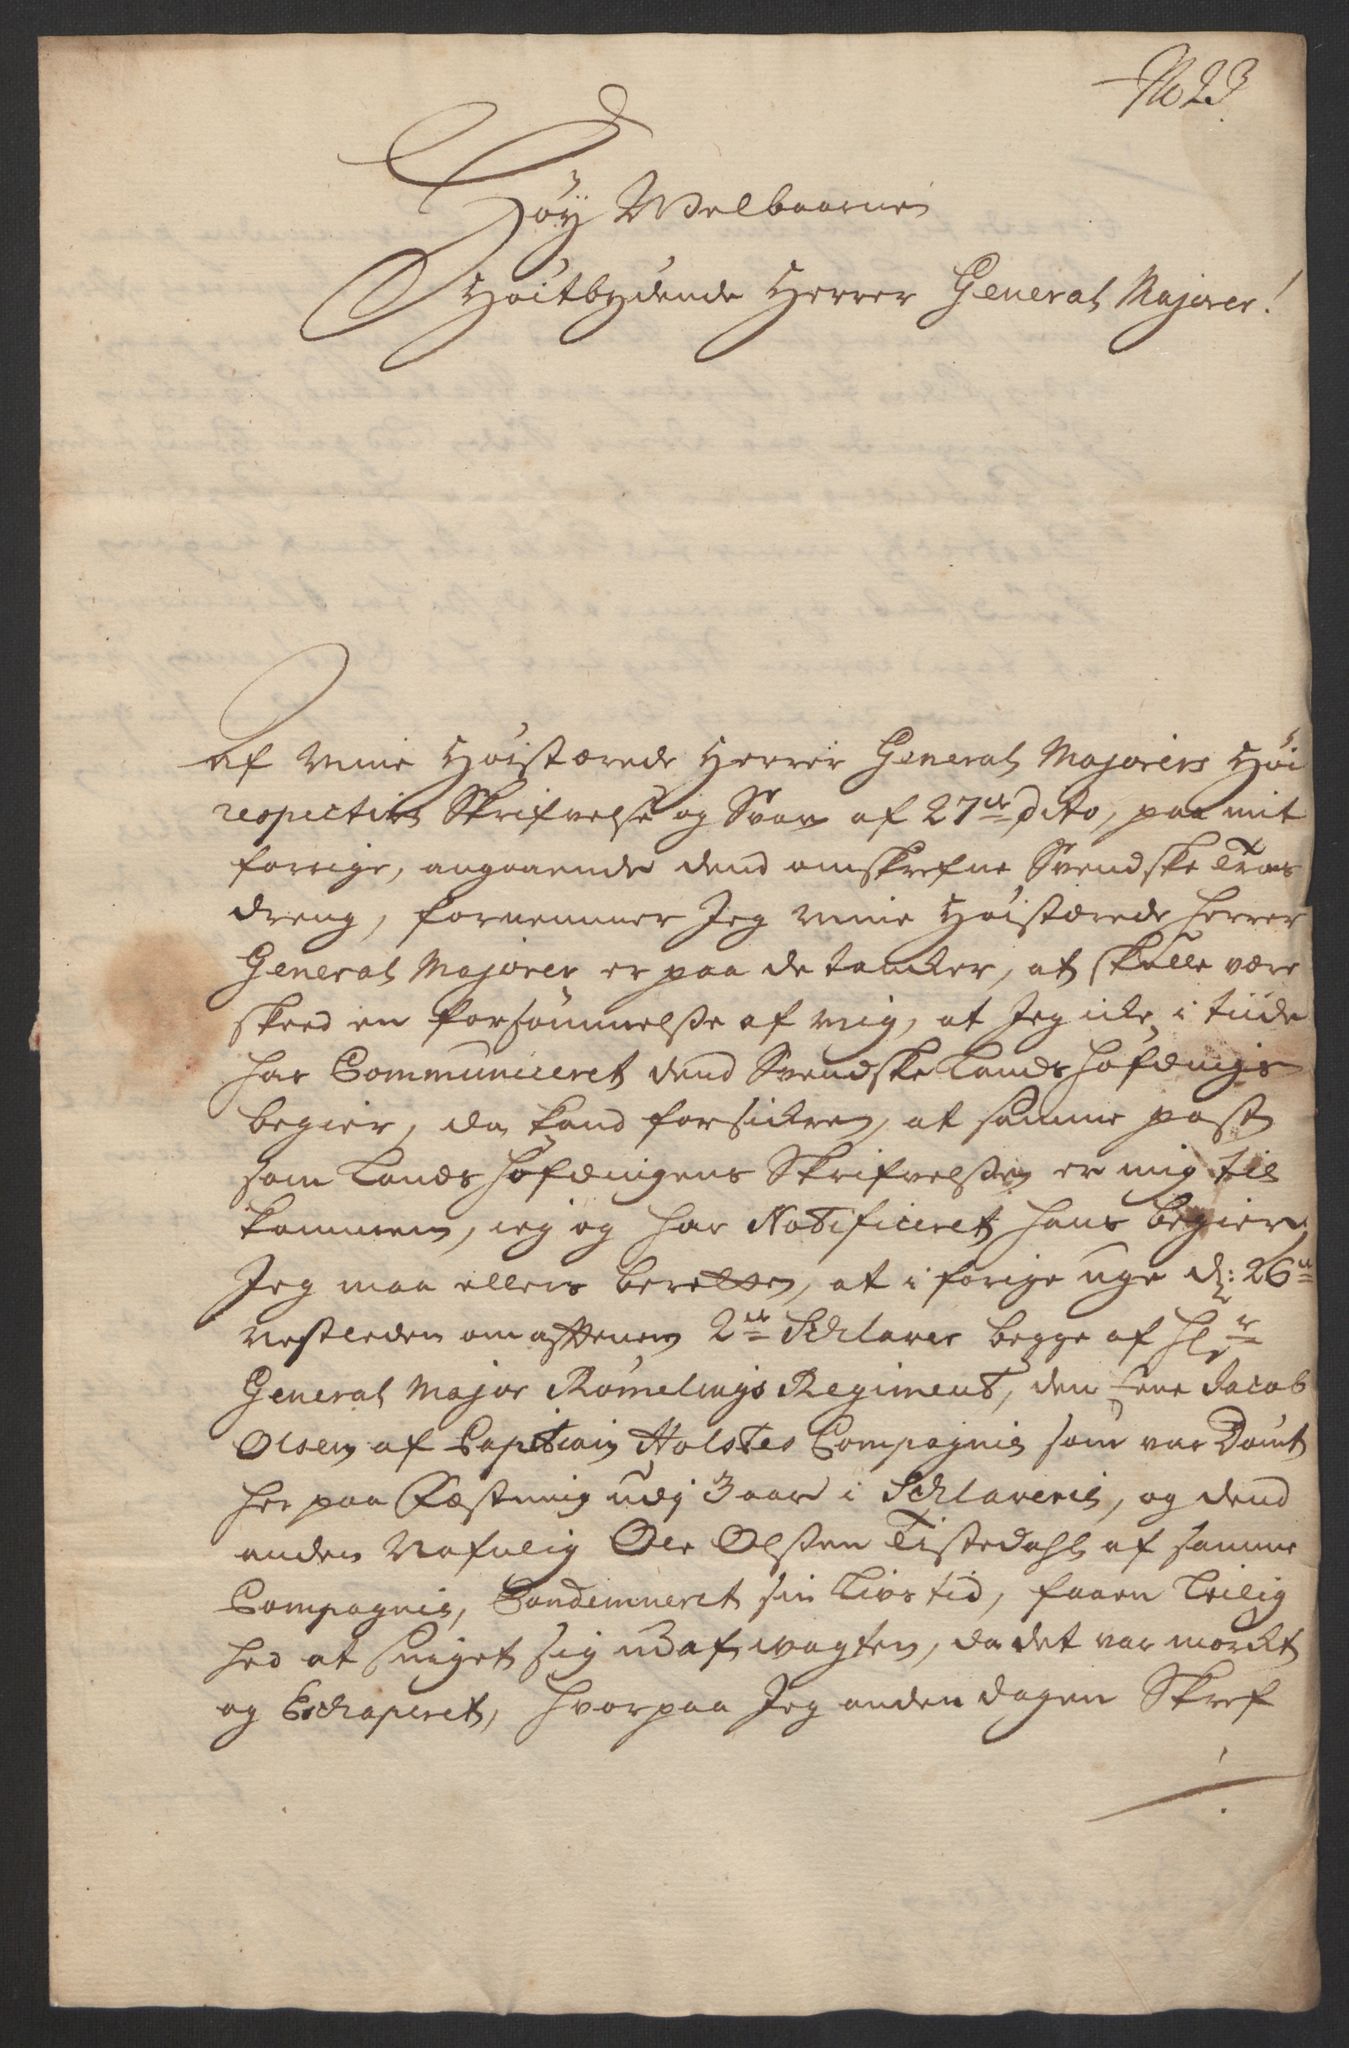 No 23
Höy Welbaarne
Höitbydende Herrer General Majorer!
Af mine Höistærede Herrer General Majorers Höi
respective Skrifvelse og Svar af 27de dito, paa mit
forrige, angaaende dend omskrefne Svendske Tros
dreng, fornemmer Jeg mine Höistærede Herrer
General Majorer er paa de tancker, at skulle være
skeed en forsömmelsse af mig, at Jeg icke i tiide
har Communiceret dend Svendske Landshöfdings
begier, da kand forsickre, at samme post
som Landshöfdingens Skrifvelsse er mig til
kommen, ieg og har Notificeret hans begier,
Jeg maa ellers berette, at i forige uge d: 26de
nestleden om afftenen 2de Schlaver begge af Hr
General Major Römelings Regiment, den Eene Jacob
Olsen af Capitain Holstes Compagnie som var Dömt
her paa Fæstning udj 3 aar i Schlaverie, og dend
anden Nafnlig Ole Olssen Tistedahl af samme
Compagnie, Condemneret sin Livs tid, faaen Leilig
hed at sniget sig ud af wagten, da det var mörckt
og Echaperet, hvorpaa Jeg anden dagen Skref